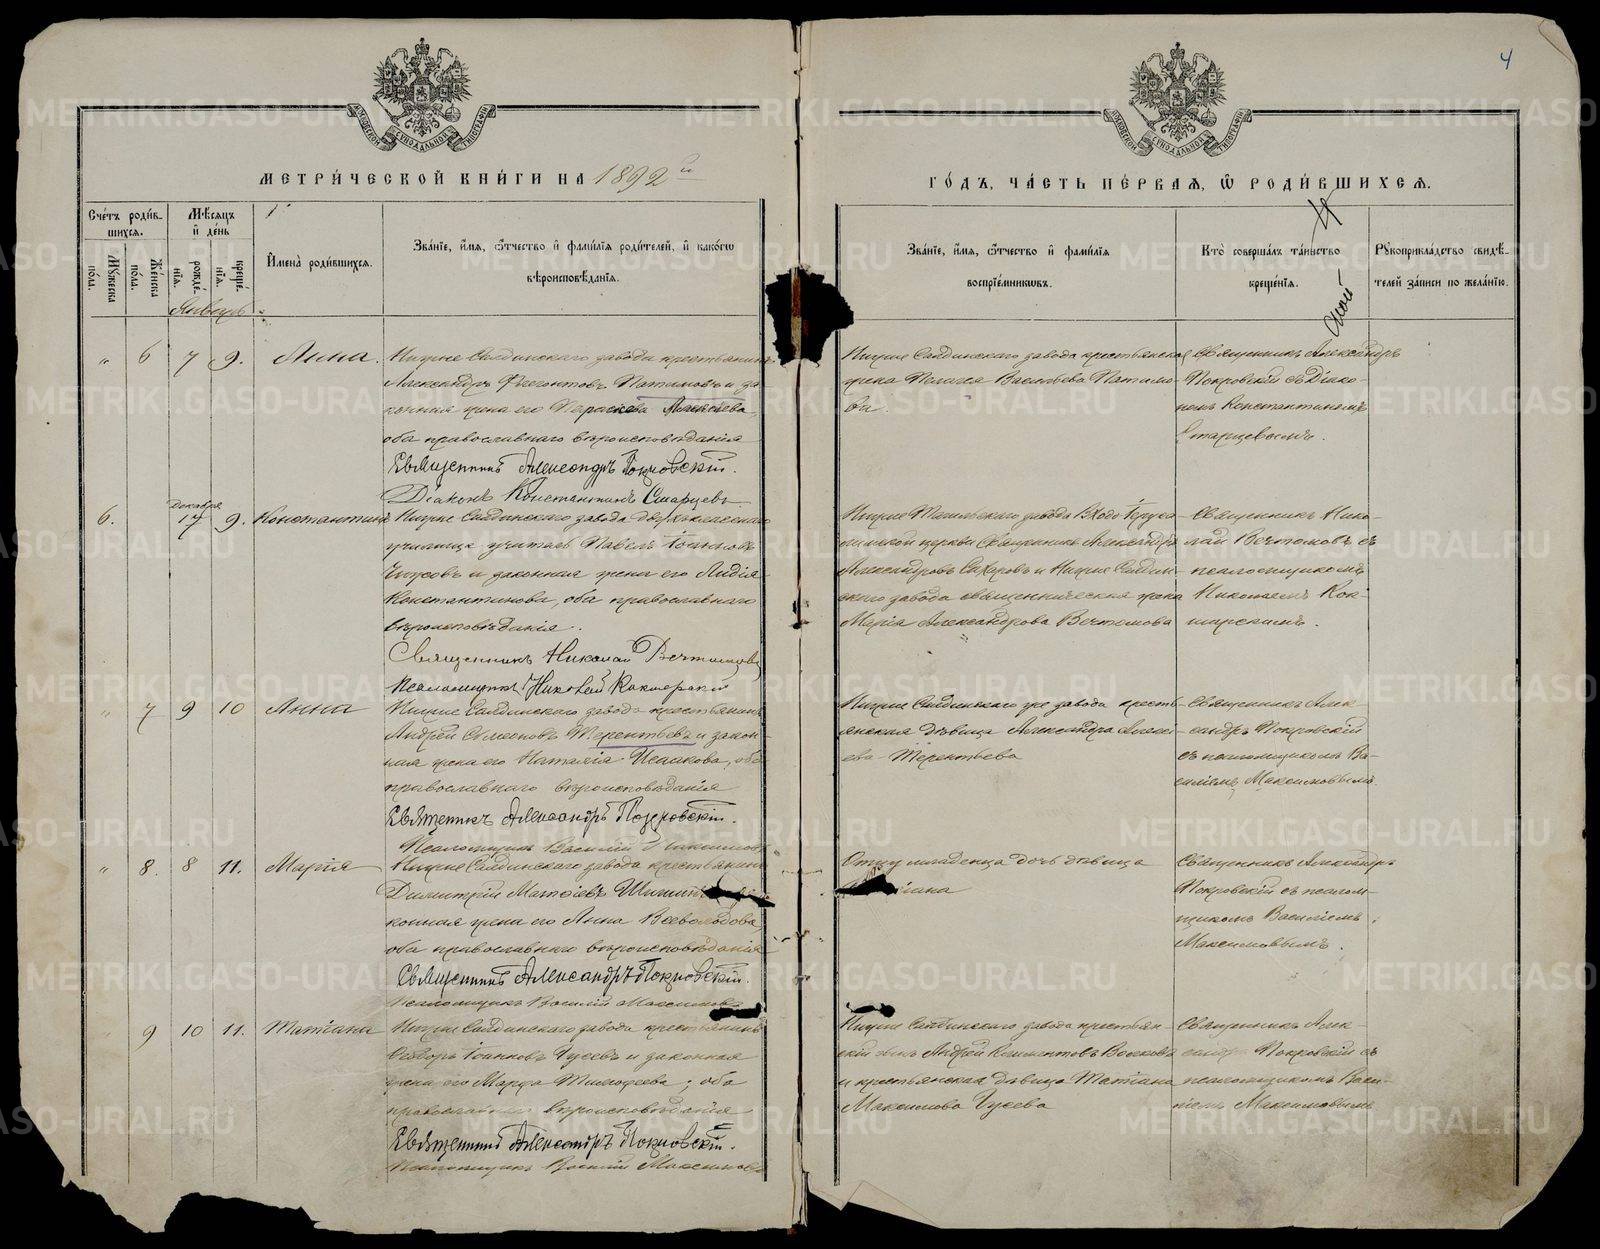 4
МЕТРИ́ЧЕСКОЙ КНИ́ГИ НА 1892 й
ГО́ДЪ, ЧА́СТЬ ПЕ́РВАЯ, Ѡ РОДИ́ВШИХСЯ.
Сче́тъ роди́вшихся.
Мꙋжеска по́ла.
Же́нска по́ла.
Мѣ́сяцъ и́ де́нь
рожде́нїѧ.
креще́нїѧ.
И́мена̀ роди́вшихся.
Зва́нїе, и́мя, ѻ́тчество и́ фами́лїя роди́телей, и́ како́гѡ
вѣроисповѣ́данїя.
Зва́нїе, и́мя, ѻ́тчество и́ фами́лїя
воспрїе́мникѡвъ.
Кто̀ соверша́лъ та́инство
креще́нїя.
Рꙋкоприкла́дство свидѣ́телей за́писи по жела́нїю.
Январь
" 6 7 9. Анна.
Нижне Салдинскаго завода крестьянинъ
Александръ Флегонтовъ Паталовъ и за-
конная жена его Параскева Алексѣева
оба православнаго вѣроисповѣданія
Священникъ Александръ Покровскій.
Діаконъ Константинъ Старцевъ
Нижне Салдинскаго завода крестьянская
жена Пелагея Васильева Патало-
ва.
Священникъ Александръ
Покровскій съ Діако-
номъ Константиномъ
Старцевымъ.
6. Декабря 17 9. Константинъ
Нижне Салдинскаго завода двухкласснаго
училища учитель Павелъ Іоанновъ
и законная жена его Лидія
Константинова, оба православнаго
вѣроисповѣданія.
Священникъ Николай Вечтомовъ
Псаломщикъ Николай Кокшарскій
Нижне Тагильскаго завода Входо Іеруса-
лимской церкви Священникъ Александръ
Александровъ Сахаровъ и Нижне Салдин-
скаго завода священническая жена
Марія Александрова Вечтомова
Священникъ Нико-
лай Вечтомовъ съ
псаломщикомъ
Николаемъ Кок-
шарскимъ.
" 7 9 10 Анна
Нижне Салдинскаго завода крестьянинъ
Андрей Симеоновъ Терентьевъ и закон-
ная жена его Наталія Исаакова, оба
православнаго вѣроисповѣданія
Священникъ Александръ Покровскій.
Псаломщикъ Василій Максимовъ
Нижне Салдинскаго же завода кресть-
янская дѣвица Александра Алексѣ-
ева Терентьева
Священникъ Алек-
сандръ Покровскій
съ псаломщикомъ Ва-
силіемъ Максимовымъ.
" 8. 8 11. Марія
Нижне Салдинскаго завода крестьянинъ
Димитрій Матѳіевъ
конная жена его Анна Всеволодова
оба православнаго вѣроисповѣданія
Священникъ Александръ Покровскій.
Псаломщикъ Василій Максимовъ
Отцу младенца дочь дѣвица
Священникъ Александръ
Покровскій съ псалом-
щикомъ Василіемъ
Максимовымъ.
9 10 11. Татіана
Нижне Салдинскаго завода крестьянинъ
Ѳеодоръ Іоанновъ Гусевъ и законная
жена его Марфа Тимофеева, оба
православнаго вѣроисповѣданія
Священникъ Александръ Покровскій.
Псаломщикъ Василій Максимовъ
Нижне Салдинскаго завода крестьян-
скій сынъ Андрей Климентовъ Волковъ
и крестьянская дѣвица Татіана
Максимова Гусева
Священникъ Алек-
сандръ Покровскій съ
псаломщикомъ Васи-
ліемъ Максимовымъ
METRIKI.GASO-URAL.RU